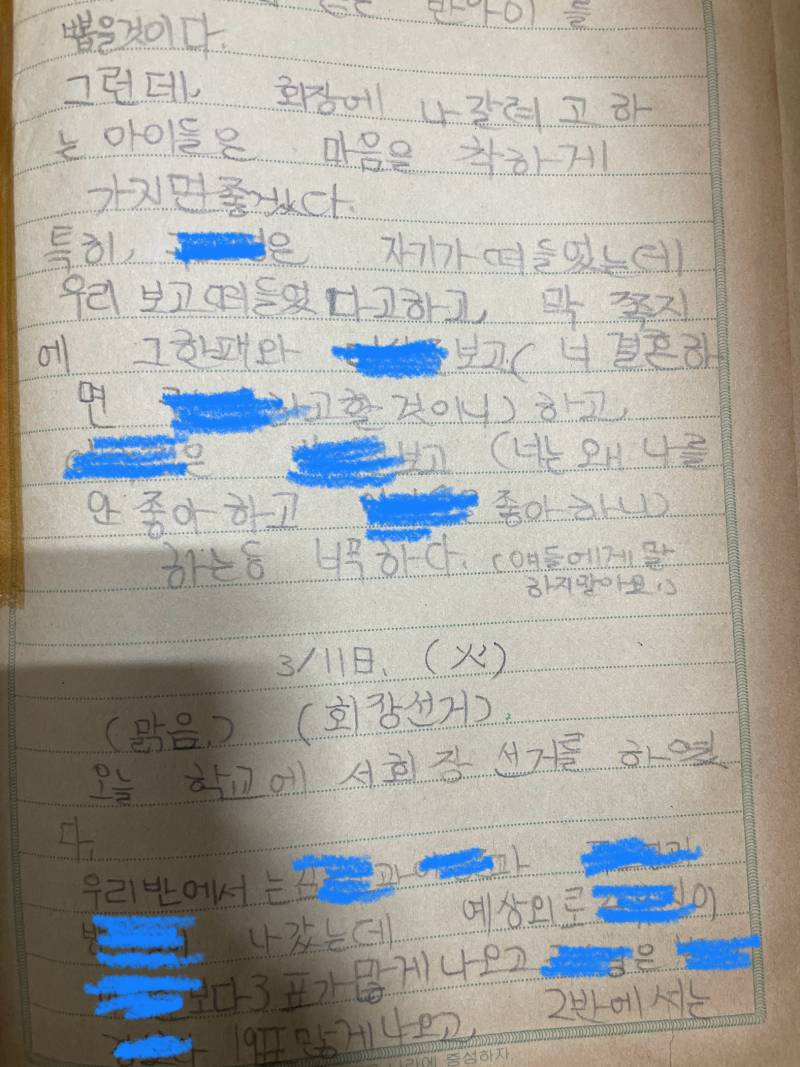 반아이들
뽑을것이다.
그런데, 회장에 나갈려고 하
는 아이들은 마음을 착하게
가지면좋겠다.
특히, 은 자기가 떠들었는데
우리보고떠들었다고하고, 막 쪽지
에 그한패와 보고(너 결혼하
면 하고할것이니)하고,
은 보고 (너는왜나를
안좋아하고 좋아하니)
하는등 너무하다. (얘들에게말
하지말아요.)
3/11日. (火)
(맑음.) (회장선거).
오늘 학교에서회장선거를하였
다.
우리반에서는 과 과
나갔는데 예상외로 이
보다3표가많게나오고 은
19표많게나오고, 2반에서는
충성하자.